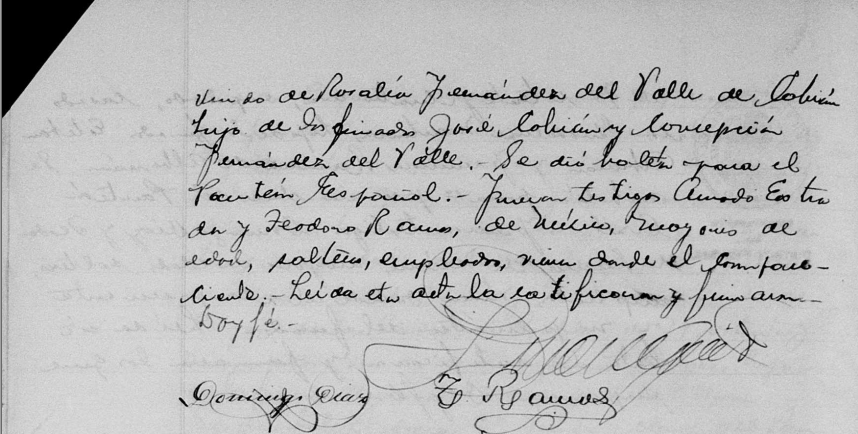 viudo de Rosalía Fernández del Valle de Cobián
hijo de los finados José Cobián y Concepción
Fernández del Valle.- Se dió boleta para el
Panteón Español.- Fueron testigos Amado Estra
da y Teodoro Ramos, de México, mayores de
edad, solteros, empleados, viven donde el compare-
ciente.- Leída esta acta la ratificaron y firmaron.-
Doy fé.-
Domingo Díaz T. Ramos